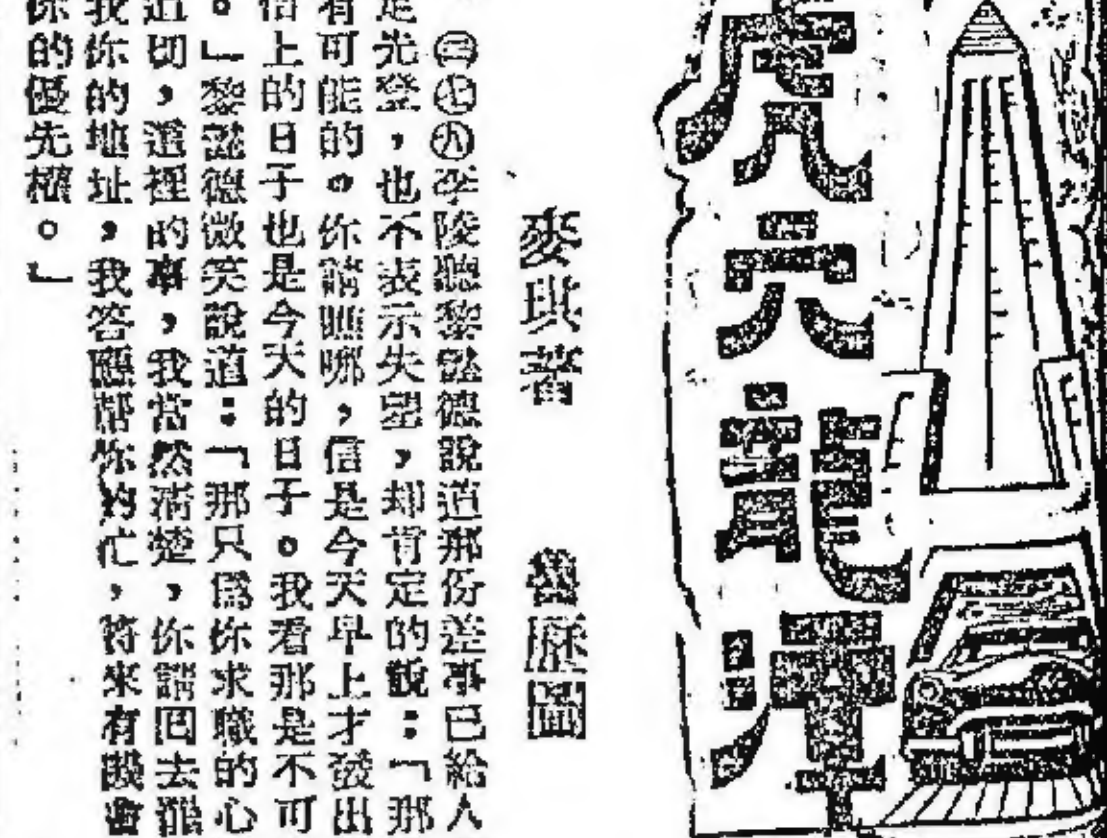 虎穴龍潭
麥琪著
歷圖
㊂㊆李陵聽黎懿德說道那份差事已給人
足先登，也不表示失望，却肯定的說：「那
有可能的。你請瞧哪，信是今天早上才發出
信上的日子也是今天的日子。我看那是不可
。」黎懿德微笑說道：「那只爲你求職的心
迫切，這裡的事，我當然清楚，你請回去罷
我你的地址，我答應幫你的忙，將來有機會
你的優先權。」